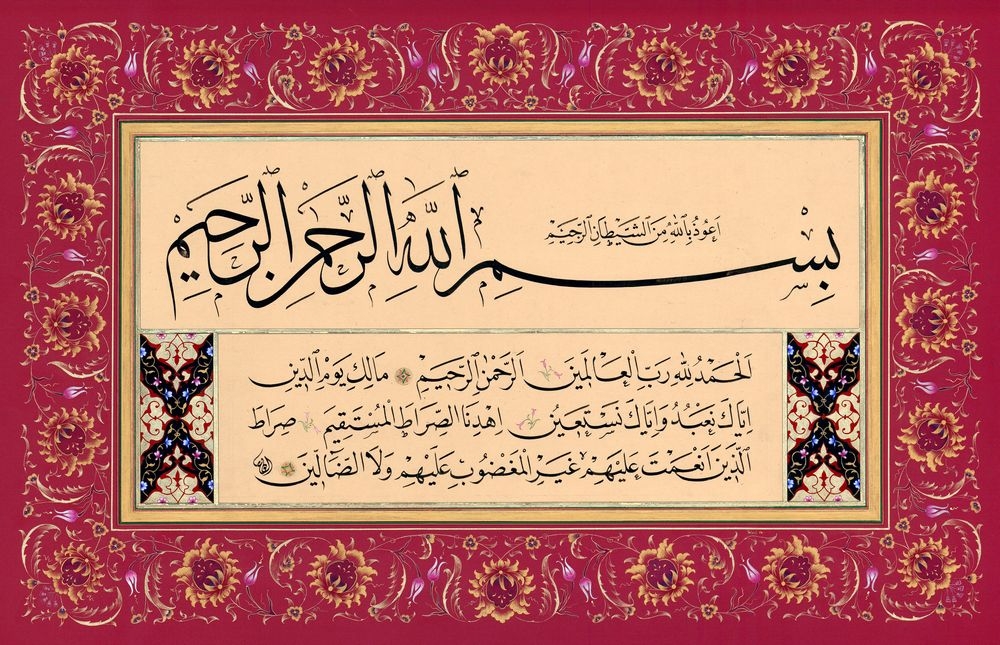 اَعُوذُ بِاللّٰهِ مِنَ الشَّيْطَانِ الرَّجِيْمِ
بِسْمِ اللّٰهِ الرَّحْمٰنِ الرَّحِيْمِ
اَلْحَمْدُ لِلّٰهِ رَبِّ الْعَالَمِيْنَ اَلرَّحْمٰنِ الرَّحِيْمِ مَالِكِ يَوْمِ الدِّيْنِ
اِيَّاكَ نَعْبُدُ وَاِيَّاكَ نَسْتَعِيْنُ اِهْدِنَا الصِّرَاطَ الْمُسْتَقِيْمَ صِرَاطَ
الَّذِيْنَ اَنْعَمْتَ عَلَيْهِمْ غَيْرِ الْمَغْضُوْبِ عَلَيْهِمْ وَلَا الضَّالِّيْنَ